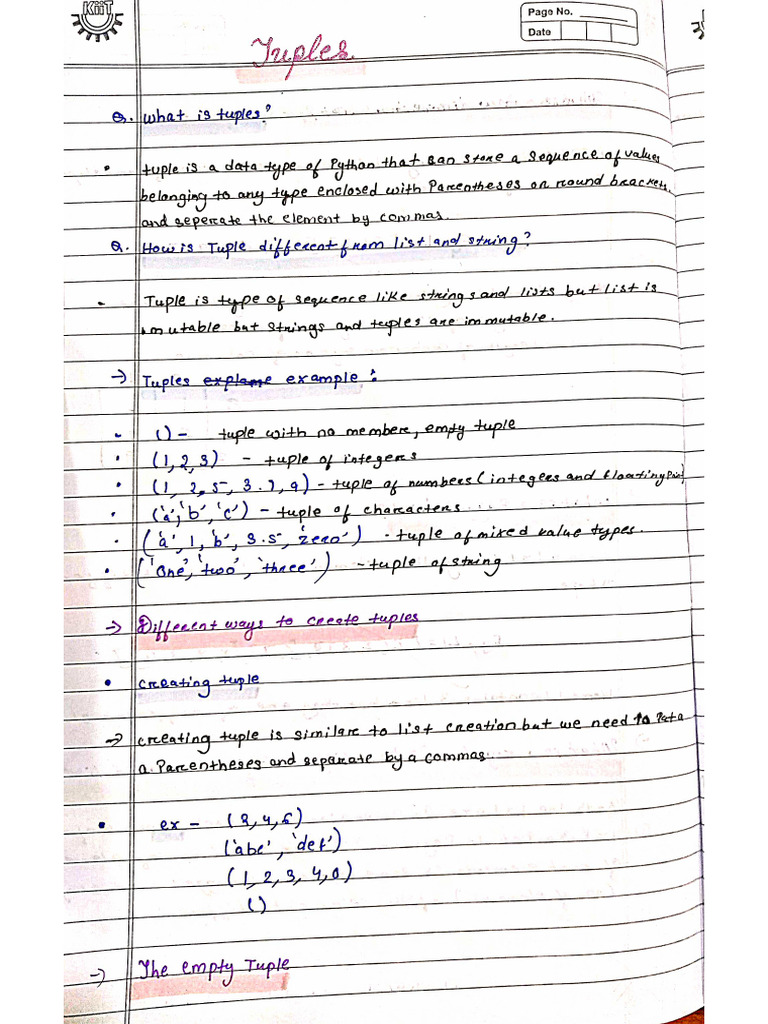 KiiT
Page No.
Date
Tuples
Q. What is tuples?
• tuple is a data type of Python that can store a sequence of values
belonging to any type enclosed with Parentheses or round brackets,
and seperate the element by commas.
Q. How is Tuple different from list and string?
- Tuple is type of sequence like strings and lists but list is
mutable but strings and tuples are immutable.
→ Tuples explame example :
- () - tuple with no member, empty tuple
• (1, 2, 3) - tuple of integers
• (1, 2.5, 3.7, 9) - tuple of numbers (integers and floating Point)
• ('a', 'b', 'c') - tuple of characters
• ('a', 1, 'b', 3.5, 'zero') - tuple of mixed value types.
• ('One', 'two', 'three') - tuple of string
→ Different ways to create tuples
• Creating tuple
→ creating tuple is similar to list creation but we need to
a Parentheses and separate by a commas
• ex - (2, 4, 6)
('abc', 'def')
(1, 2, 3, 4, 0)
()
→ The empty Tuple